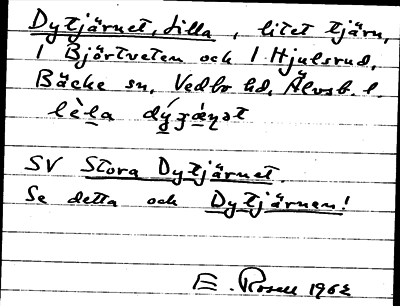 Dytjärnet, Lilla, litet tjärn,
1 Björtveten och 1 Hjulsrud,
Bäcke sn, Vedbo hd, Älvsb. l.
lèla
SV Stora Dytjärnet.
Se detta och Dytjärnen!
E. Rosell 1962